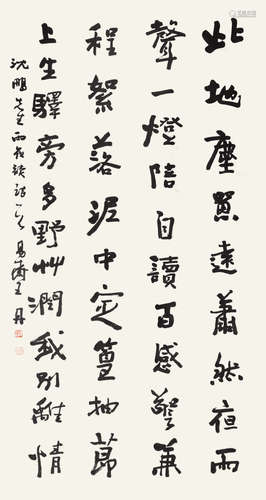 此地塵囂遠蕭然夜雨
聲一燈陪自讀百感警兼
程絮落泥中定篁抽節
上生驛旁多野艸潤我別離情
沈鵬先生雨夜讀詩 王丹